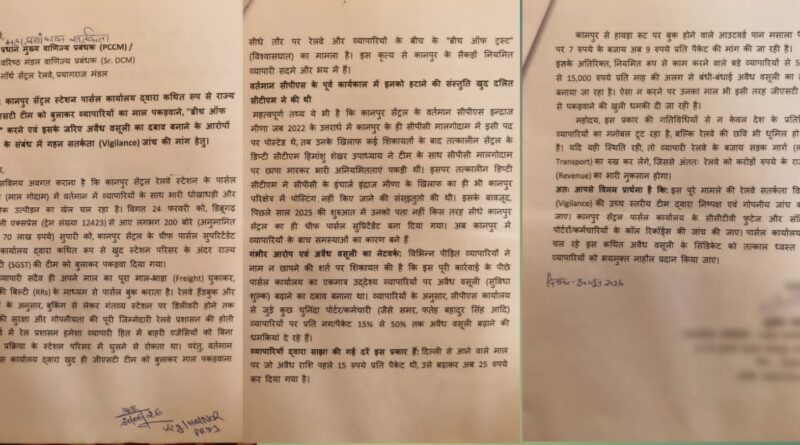 महाप्रबंधक सतर्कता
प्रधान मुख्य वाणिज्य प्रबंधक (PCCM) /
वरिष्ठ मंडल वाणिज्य प्रबंधक (Sr. DCM)
नॉर्थ सेंट्रल रेलवे, प्रयागराज मंडल
कानपुर सेंट्रल स्टेशन पार्सल कार्यालय द्वारा कथित रूप से राज्य
एसटी टीम को बुलाकर व्यापारियों का माल पकड़वाने, "ब्रीच ऑफ
" करने एवं इसके जरिए अवैध वसूली का दबाव बनाने के आरोपों
के संबंध में गहन सतर्कता (Vigilance) जांच की मांग हेतु।
सविनय अवगत कराना है कि कानपुर सेंट्रल रेलवे स्टेशन के पार्सल
(माल गोदाम) में वर्तमान में व्यापारियों के साथ भारी धोखाधड़ी और
क उत्पीड़न का खेल चल रहा है। विगत 24 फरवरी को, डिब्रूगढ़
नी एक्सप्रेस (ट्रेन संख्या 12423) से आए लगभग 200 बोरे (अनुमानित
70 लाख रुपये) सुपारी को, कानपुर सेंट्रल के चीफ पार्सल सुपरिटेंडेंट
कार्यालय द्वारा कथित रूप से खुद स्टेशन परिसर के अंदर राज्य
टी (SGST) की टीम को बुलाकर पकड़वा दिया गया।
यापारी सदैव ही अपने माल का पूरा माल-भाड़ा (Freight) चुकाकर,
की बिल्टी (RRs) के माध्यम से पार्सल बुक कराता है। रेलवे हैंडबुक और
के अनुसार, बुकिंग से लेकर गंतव्य स्टेशन पर डिलीवरी होने तक
की सुरक्षा और गोपनीयता की पूरी जिम्मेदारी रेलवे प्रशासन की होती
र्व में रेल प्रशासन हमेशा व्यापारी हित में बाहरी एजेंसियों को बिना
प्रक्रिया के स्टेशन परिसर में घुसने से रोकता था। परंतु, वर्तमान
स कार्यालय द्वारा खुद ही जीएसटी टीम को बुलाकर माल पकड़वाना
सीधे तौर पर रेलवे और व्यापारियों के बीच के "ब्रीच ऑफ ट्रस्ट"
(विश्वासघात) का मामला है। इस कृत्य से कानपुर के सैकड़ों नियमित
व्यापारी सदमे और भय में हैं।
वर्तमान सीपीएस के पूर्व कार्यकाल में इनको हटाने की संस्तुति खुद दलित
सीटीएम ने की थी
महत्वपूर्ण तथ्य ये भी है कि कानपुर सेंट्रल के वर्तमान सीपीएस इन्द्राज
मीणा जब 2022 के उत्तरार्ध में कानपुर के ही सीपीसी मालगोदाम में इसी पद
पर पोस्टेड थे, तब उनके खिलाफ कई शिकायतों के बाद तत्कालीन सेंट्रल के
डिप्टी सीटीएम हिमांशु शेखर उपाध्याय ने टीम के साथ सीपीसी मालगोदाम पर
छापा मारकर भारी अनियमितताएं पकड़ी थीं। इसपर तत्कालीन डिप्टी
सीटीएम ने सीपीसी के इंचार्ज इन्द्राज मीणा के खिलाफ का ही भी कानपुर
परिक्षेत्र में पोस्टिंग नहीं किए जाने की संस्तुति की थी। इसके बावजूद,
पिछले साल 2025 की शुरुआत में उनको पता नहीं किस तरह सीधे कानपुर
सेंट्रल का ही चीफ पार्सल सुप्रिटेंडेंट बना दिया गया। अब कानपुर में
व्यापारियों के बीच समस्याओं का कारण बने हैं
गंभीर आरोप एवं अवैध वसूली का नेटवर्क: विभिन्न पीड़ित व्यापारियों ने
नाम न छापने की शर्त पर शिकायत की है कि इस पूरी कार्रवाई के पीछे
पार्सल कार्यालय का एकमात्र उद्देश्य व्यापारियों पर अवैध वसूली (सुविधा
शुल्क) बढ़ाने का दबाव बनाना था। व्यापारियों के अनुसार, सीपीएस कार्यालय
से जुड़े कुछ चुनिंदा पोर्टर/कर्मचारी (जैसे समर, फतेह बहादुर सिंह आदि)
व्यापारियों पर प्रति नग/पैकेट 15% से 50% तक अवैध वसूली बढ़ाने की
धमकियां दे रहे हैं।
व्यापारियों द्वारा साझा की गई दरें इस प्रकार हैं: दिल्ली से आने वाले माल
पर जो अवैध राशि पहले 15 रुपये प्रति पैकेट थी, उसे बढ़ाकर अब 25 रुपये
कर दिया गया है।
कानपुर से हावड़ा रूट पर बुक होने वाले आउटवर्ड पान मसाला
पर 7 रुपये के बजाय अब 9 रुपये प्रति पैकेट की मांग की जा रही है।
इसके अतिरिक्त, नियमित रूप से काम करने वाले बड़े व्यापारियों से 5
से 15,000 रुपये प्रति माह की अलग से बंधी-बंधाई अवैध वसूली का
बनाया जा रहा है। ऐसा न करने पर उनका माल भी इसी तरह जीएसटी
से पकड़वाने की खुली धमकी दी जा रही है।
महोदय, इस प्रकार की गतिविधियों से न केवल देश के प्रति
व्यापारियों का मनोबल टूट रहा है, बल्कि रेलवे की छवि भी धूमिल हो
है। यदि यही स्थिति रही, तो व्यापारी रेलवे के बजाय सड़क मार्ग (R
Transport) का रुख कर लेंगे, जिससे अंततः रेलवे को करोड़ों रुपये के रा
(Revenue) का भारी नुकसान होगा।
अतः आपसे विनम्र प्रार्थना है कि: इस पूरे मामले की रेलवे सतर्कता वि
(Vigilance) की उच्च स्तरीय टीम द्वारा निष्पक्ष एवं गोपनीय जांच क
जाए। कानपुर सेंट्रल पार्सल कार्यालय के सीसीटीवी फुटेज और सं
पोर्टरों/कर्मचारियों के कॉल रिकॉर्ड्स की जांच की जाए। पार्सल कार्याल
चल रहे इस कथित अवैध वसूली के सिंडिकेट को तत्काल ध्वस्त
व्यापारियों को भयमुक्त माहौल प्रदान किया जाए।